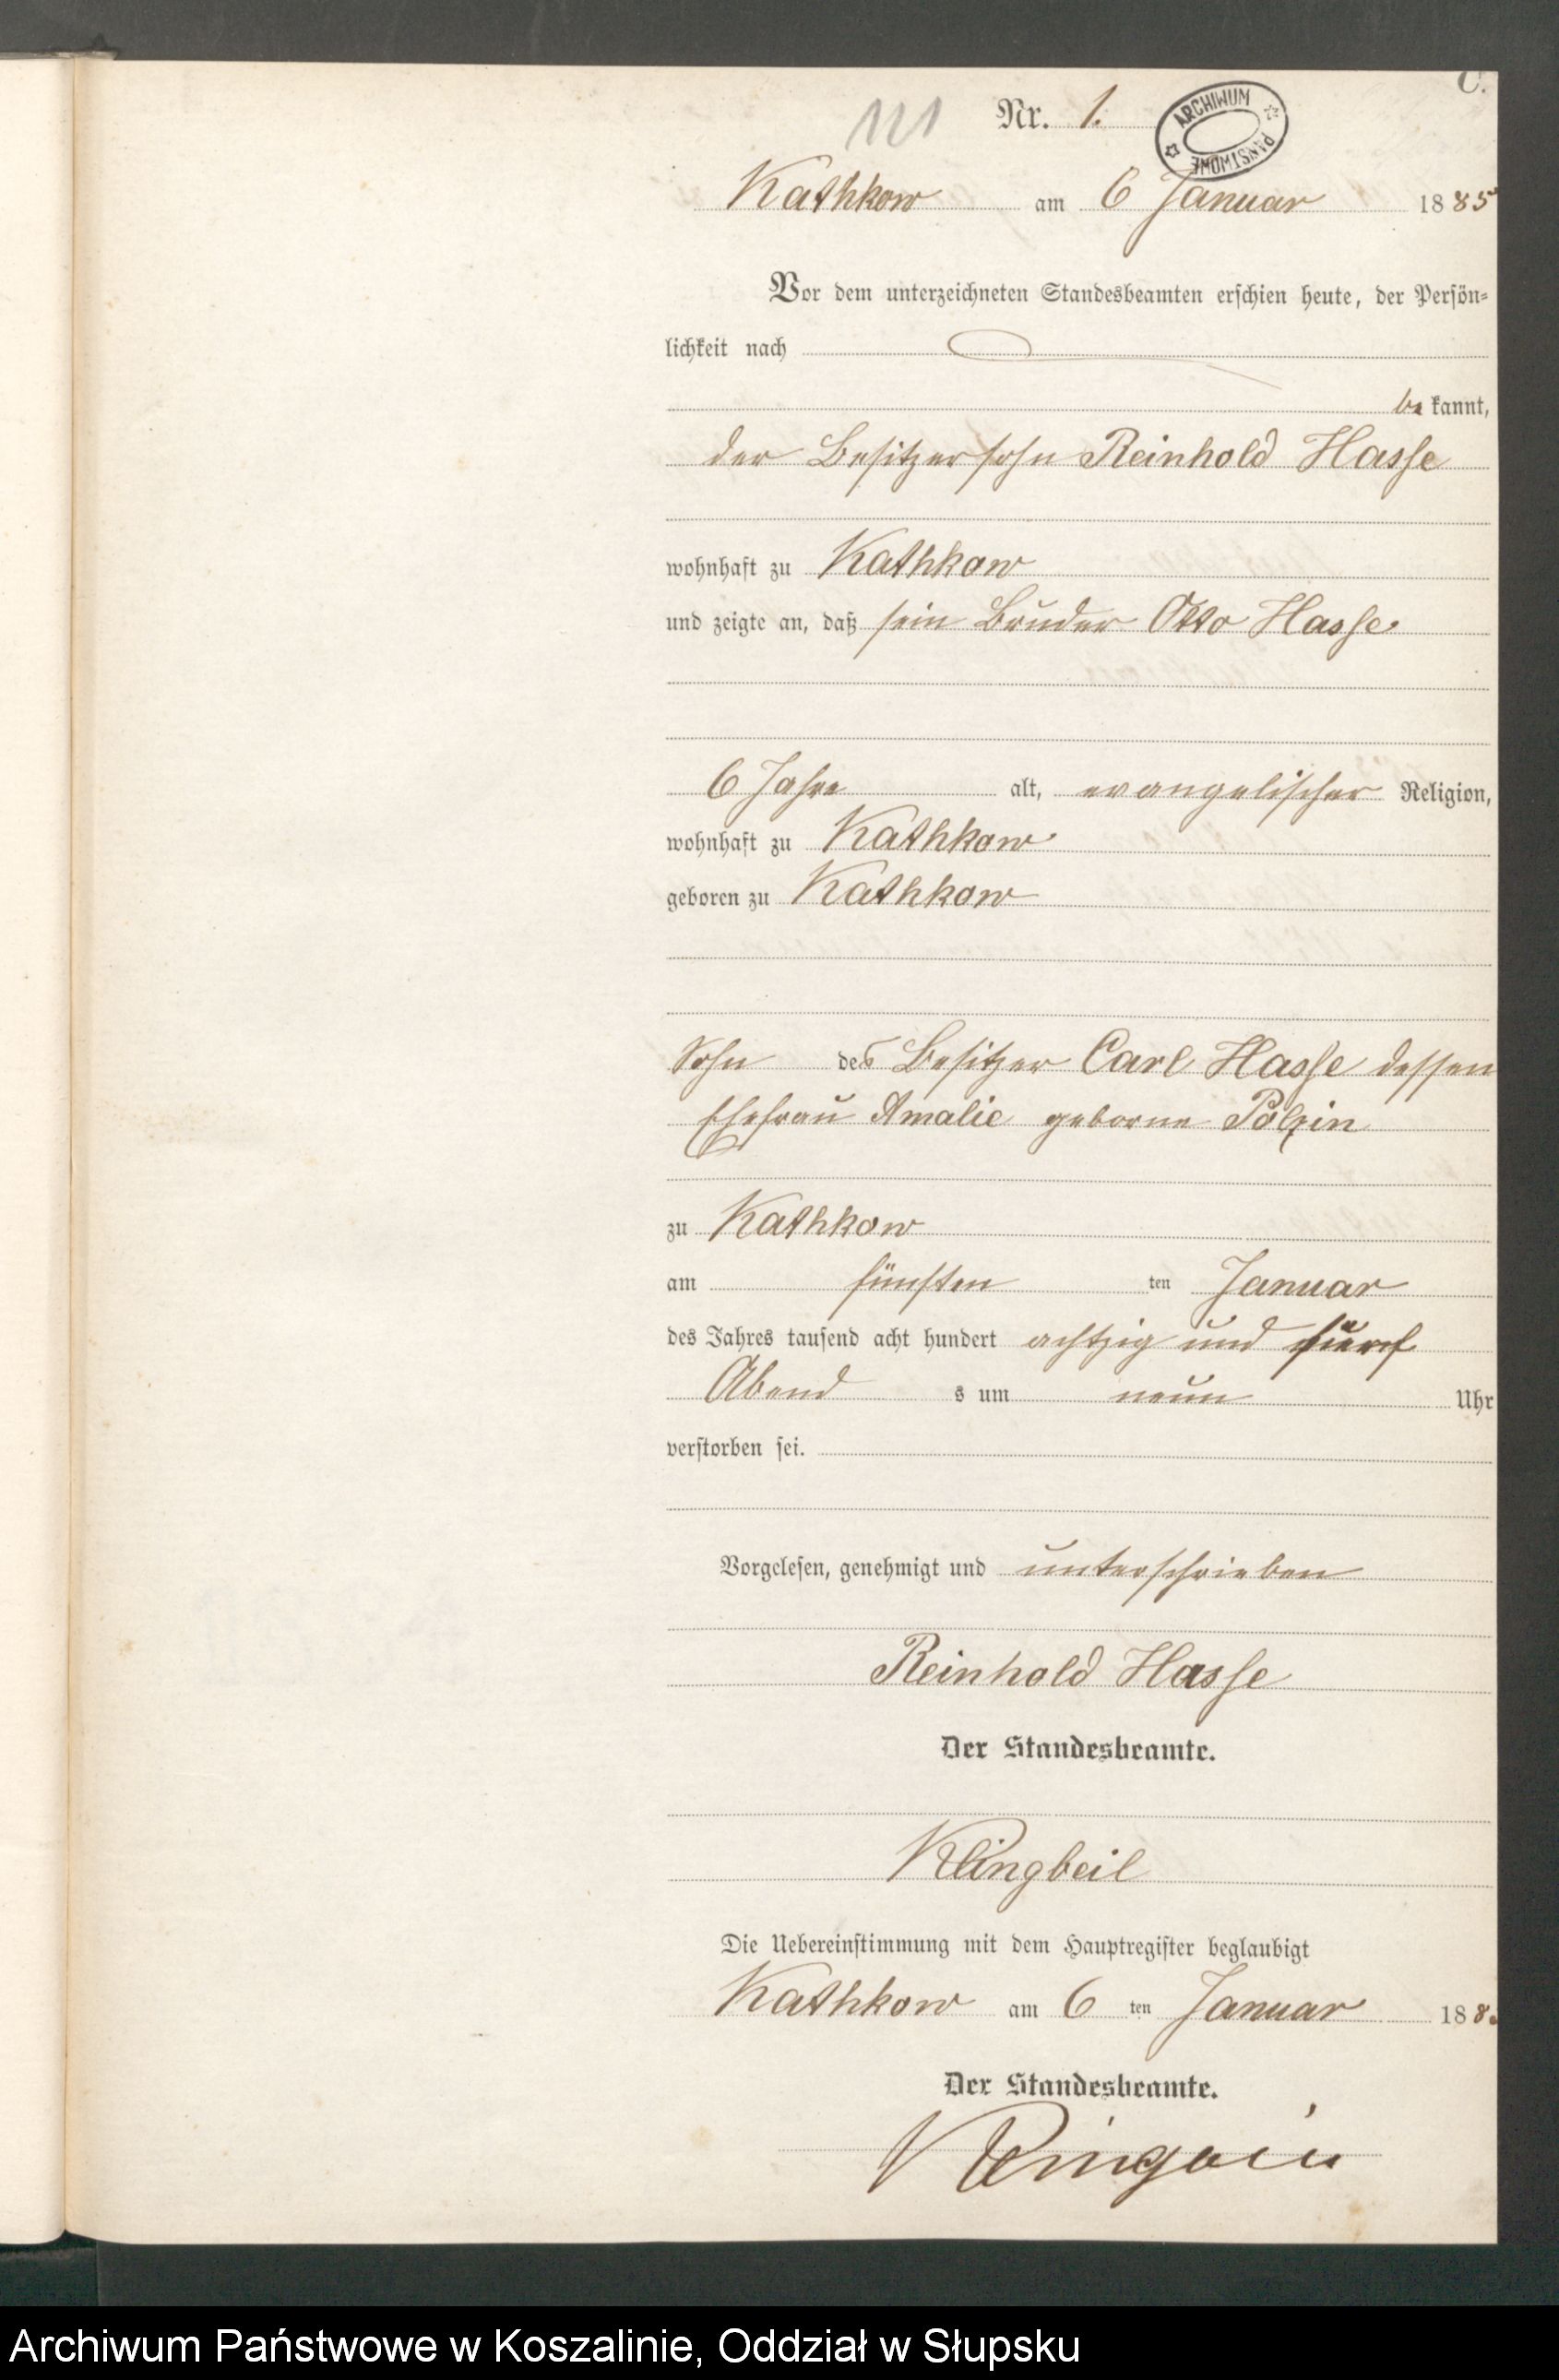 C.
121 Nr. 1.
ARCHIWUM PAŃSTWOWE
Kathkow am 6 Januar 1885
Vor dem unterzeichneten Standesbeamten erschien heute, der Persön-
lichkeit nach
be kannt,
der Besitzersohn Reinhold Hasse
wohnhaft zu Kathkow
und zeigte an, daß sein Bruder Otto Hasse
6 Jahre alt, evangelischer Religion,
wohnhaft zu Kathkow
geboren zu Kathkow
Sohn des Besitzer Carl Hasse dessen
Ehefrau Amalie geborne Polzin
zu Kathkow
am fünften ten Januar
des Jahres tausend acht hundert achtzig und fünf
Abend s um neun Uhr
verstorben sei.
Vorgelesen, genehmigt und unterschrieben
Reinhold Hasse
Der Standesbeamte.
Klingbeil
Die Uebereinstimmung mit dem Hauptregister beglaubigt
Kathkow am 6 ten Januar 188
Der Standesbeamte.
Klingbeil
Archiwum Państwowe w Koszalinie, Oddział w Słupsku